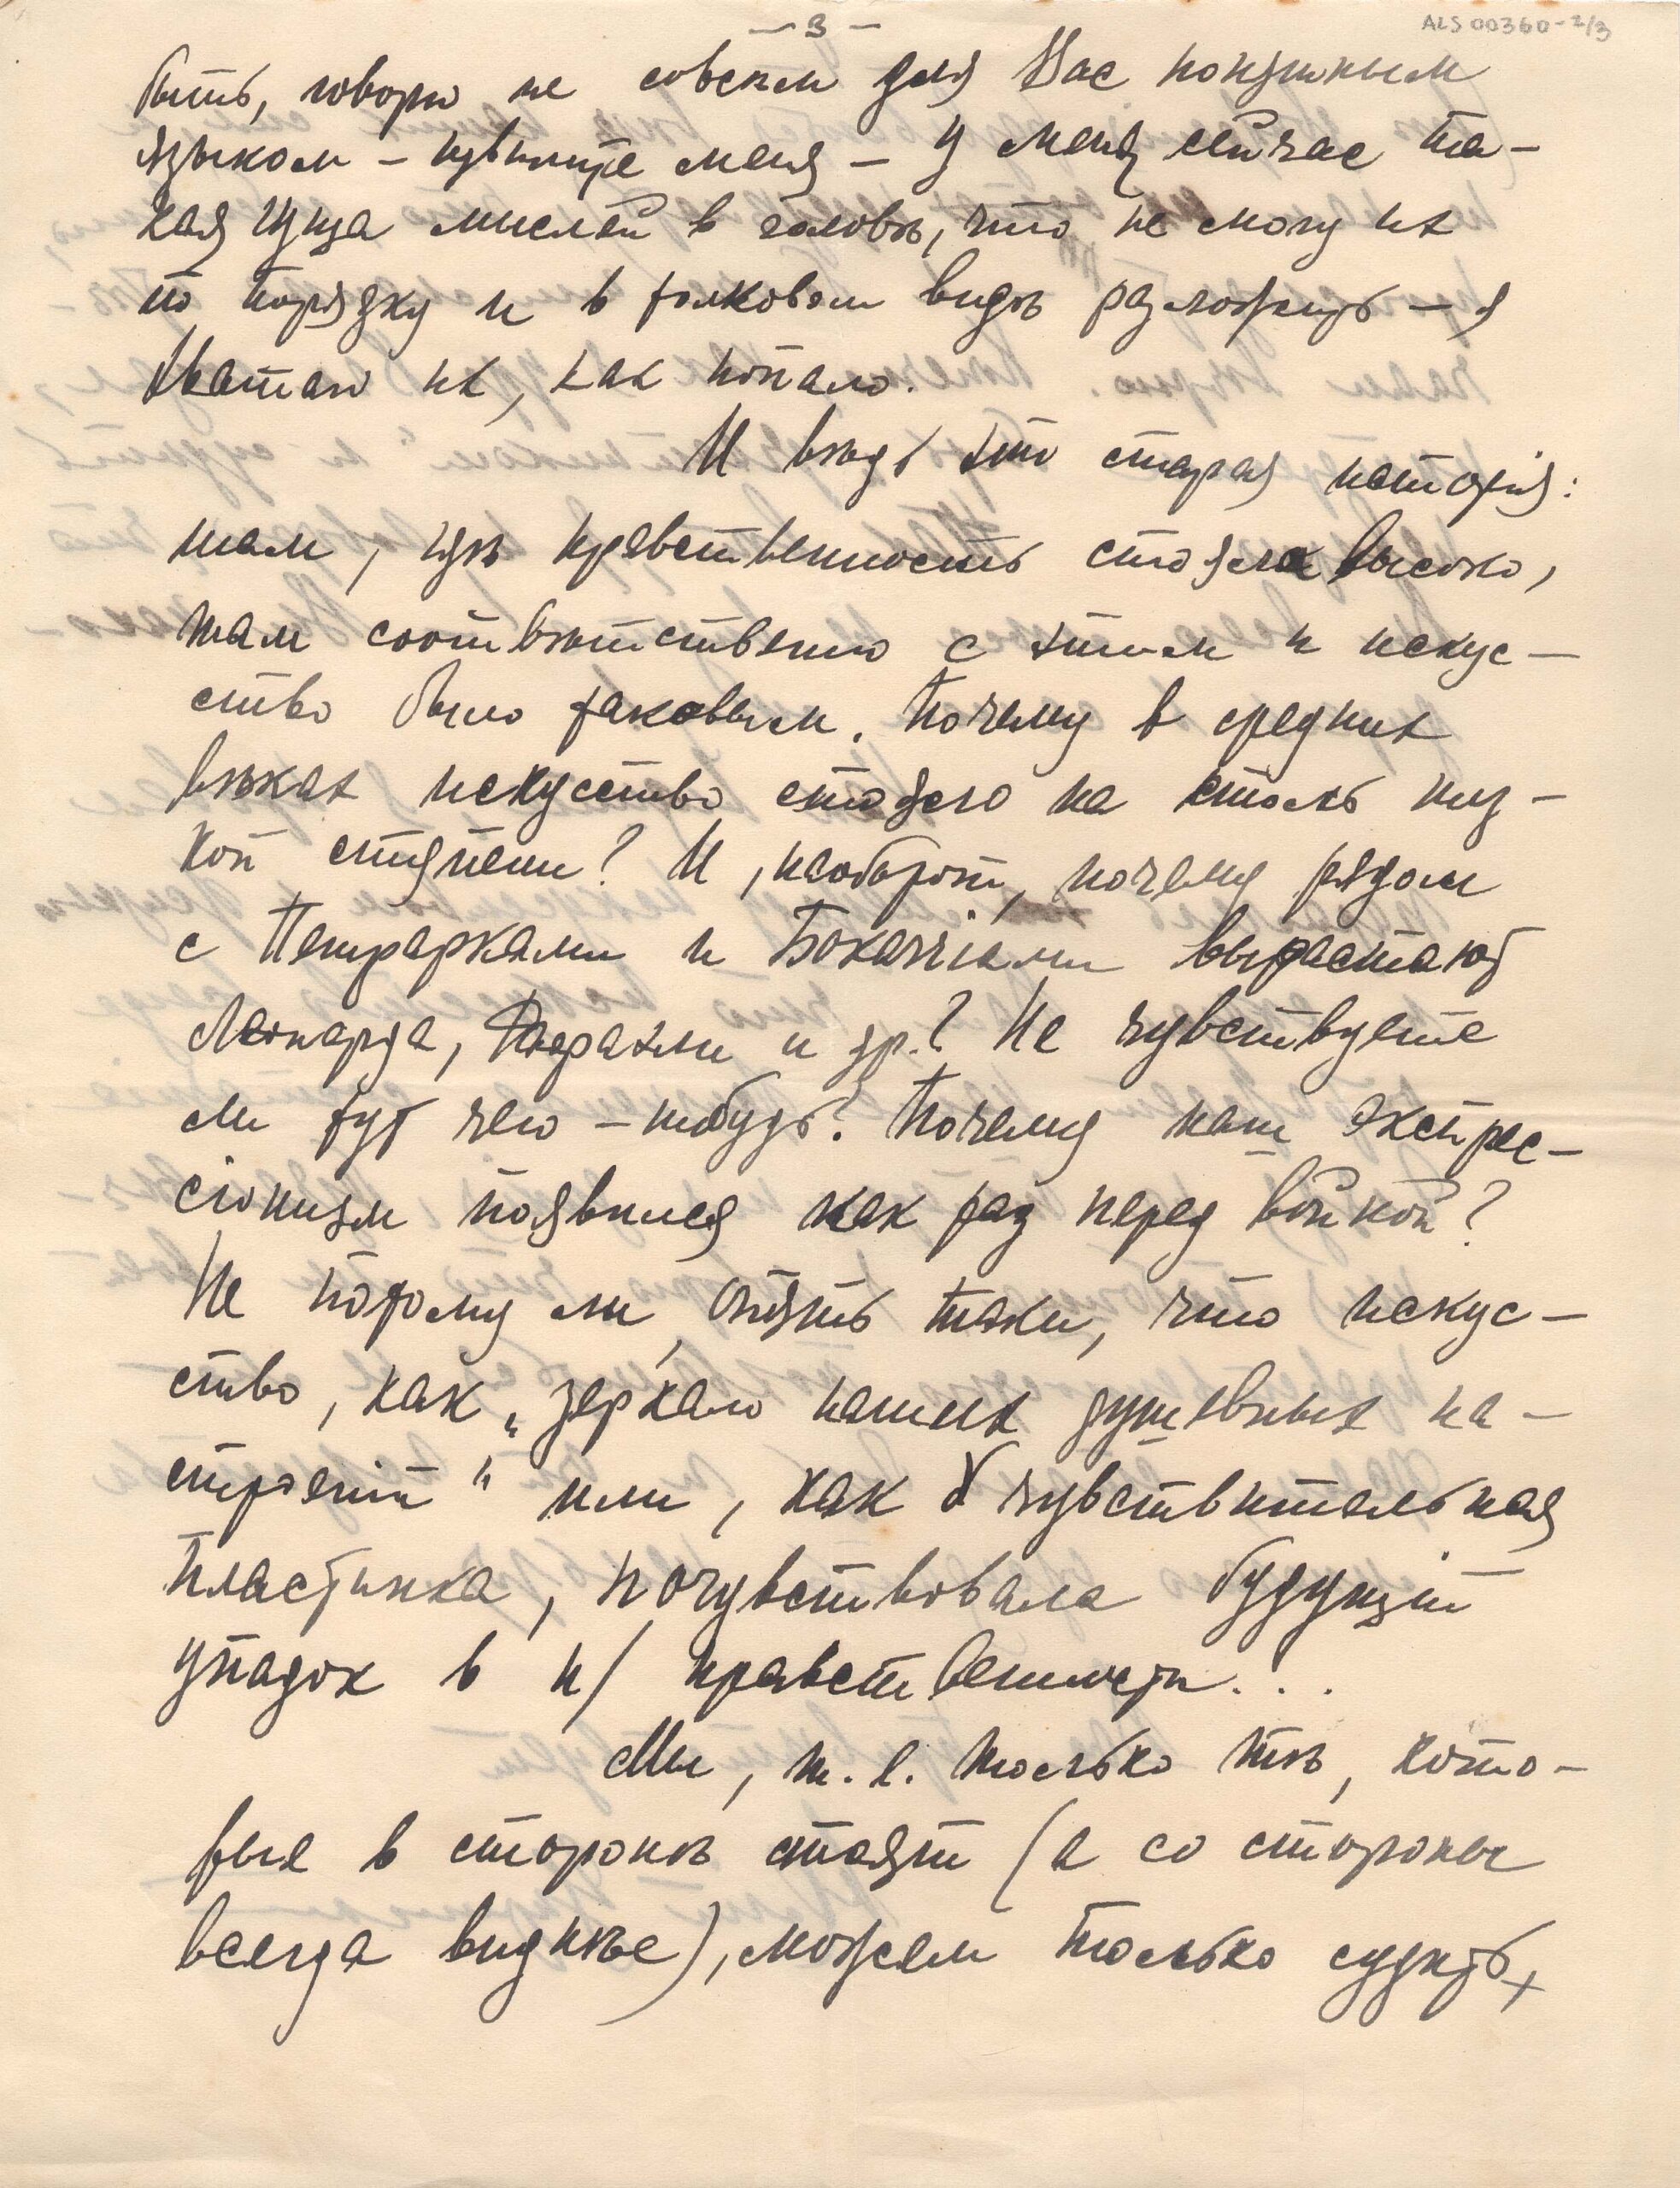 — 3 —
ALS 00360-2/3
быть, говорю не совсем для Вас понятным
языком – извините меня – у меня сейчас та-
кая гуща мыслей в головѣ, что не могу их
по порядку и в толковом видѣ разложить – я
хватаю их, как попало.
И вѣдь это старая исторія:
там, гдѣ нравственность стояла высоко,
там соотвѣтственно с этим и искус-
ство было таковым. Почему в средних
вѣках искусство стояло на столь низ-
кой ступени? И, наоборот, почему рядом
с Петрарками и Бокаччіами вырастают
Леонарда, Рафаэли и др.? Не чувствуете
ли тут чего-нибудь? Почему наш экспрес-
сіонизм появился как раз перед войной?
Не потому ли, опять таки, что искус-
ство, как „зеркало наших душевных на-
строеній“ или, как чувствительная
пластинка, почувствовала будущій
упадок в н/ нравственности...
Мы, т. е. только тѣ, кото-
рые в сторонѣ стоят (а со стороны
всегда виднѣе), можем только судить,